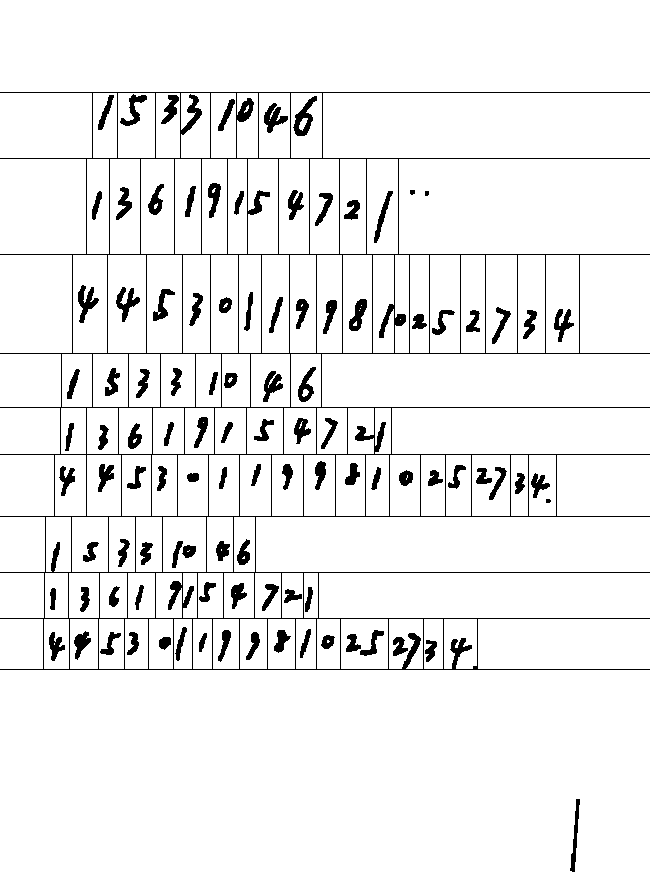 15331046
13619154721..
445301199810252734
15331046
13619154721
445301199810252734.
15331046
13619154721
445301199810252734.